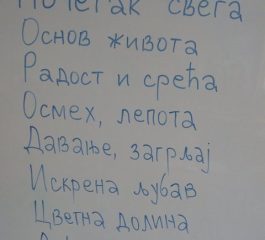 Почетак свега
Основ живота
Радост и срећа
Осмех, лепота
Давање, загрљај
Искрена љубав
Цветна долина